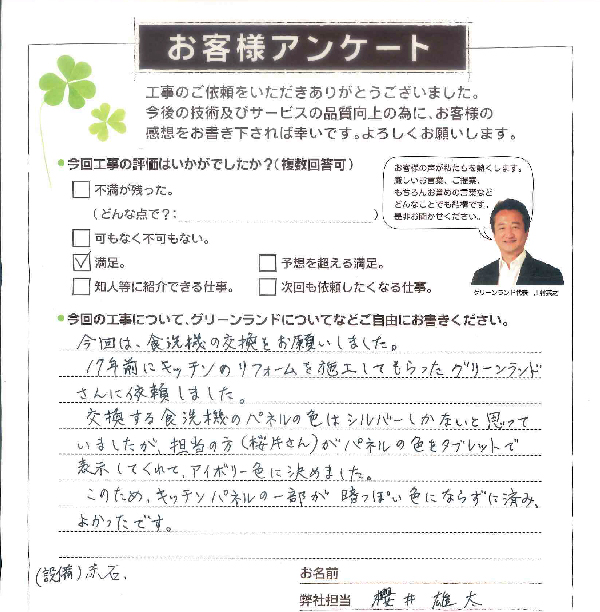 お客様アンケート
工事のご依頼をいただきありがとうございました。
今後の技術及びサービスの品質向上の為に、お客様の
感想をお書き下されば幸いです。よろしくお願いします。
●今回工事の評価はいかがでしたか?(複数回答可)
お客様の声が私たちを動かします。
厳しいお言葉、ご提案、
もちろんお誉めの言葉など
どんなことでも結構です。
是非お聞かせください。
不満が残った。
(どんな点で?: )
可もなく不可もない。
満足。
予想を超える満足。
知人等に紹介できる仕事。
次回も依頼したくなる仕事。
グリーンランド代表
●今回の工事について、グリーンランドについてなどご自由にお書きください。
今回は、食洗機の交換をお願いしました。
17年前にキッチンのリフォームを施工してもらったグリーンランド
さんに依頼しました。
交換する食洗機のパネルの色はシルバーしかないと思って
いましたが、担当の方(桜井さん)がパネルの色をタブレットで
表示してくれて、アイボリー色に決めました。
このため、キッチンパネルの一部が暗っぽい色にならずに済み、
よかったです。
(設備)赤石.
お名前
弊社担当 櫻井 雄太